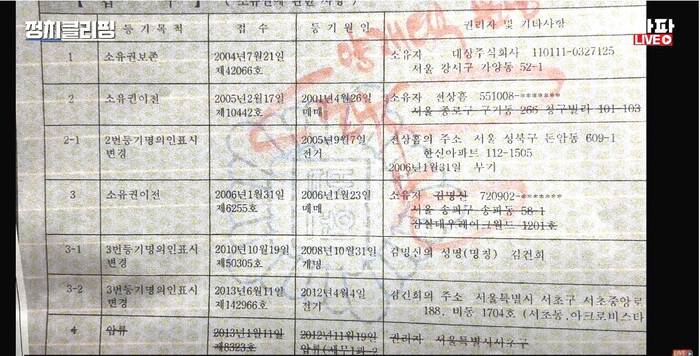 정치클리핑
LIVE
등기목적 접 수 등기원인 권리자 및 기타사항
1 소유권보존 2004년7월21일 제42066호 소유자 대상주식회사 110111-0327125
서울 강서구 가양동 52-1
2 소유권이전 2005년2월17일 제10442호 2001년4월26일 매매 소유자 전상흠 551008-*******
서울 종로구 구기동 266 청구빌라 101-103
2-1 2번등기명의인표시 변경 2005년9월7일 전거 전상흠의 주소 서울 성북구 돈암동 609-1
한신아파트 112-1505
2006년1월31일 부기
3 소유권이전 2006년1월31일 제6255호 2006년1월23일 매매 소유자 김명신 720902-*******
서울 송파구 송파동 58-1
잠실대우레이크월드 1201호
3-1 3번등기명의인표시 변경 2010년10월19일 제50305호 2008년10월31일 개명 김명신의 성명(명칭) 김건희
3-2 3번등기명의인표시 변경 2013년6월11일 제142966호 2012년4월4일 전거 김건희의 주소 서울특별시 서초구 서초중앙로
188, 비동 1704호 (서초동,아크로비스타
4 압류 2013년1월11일 제8323호 2012년11월19일 권리자 서울특별시서초구